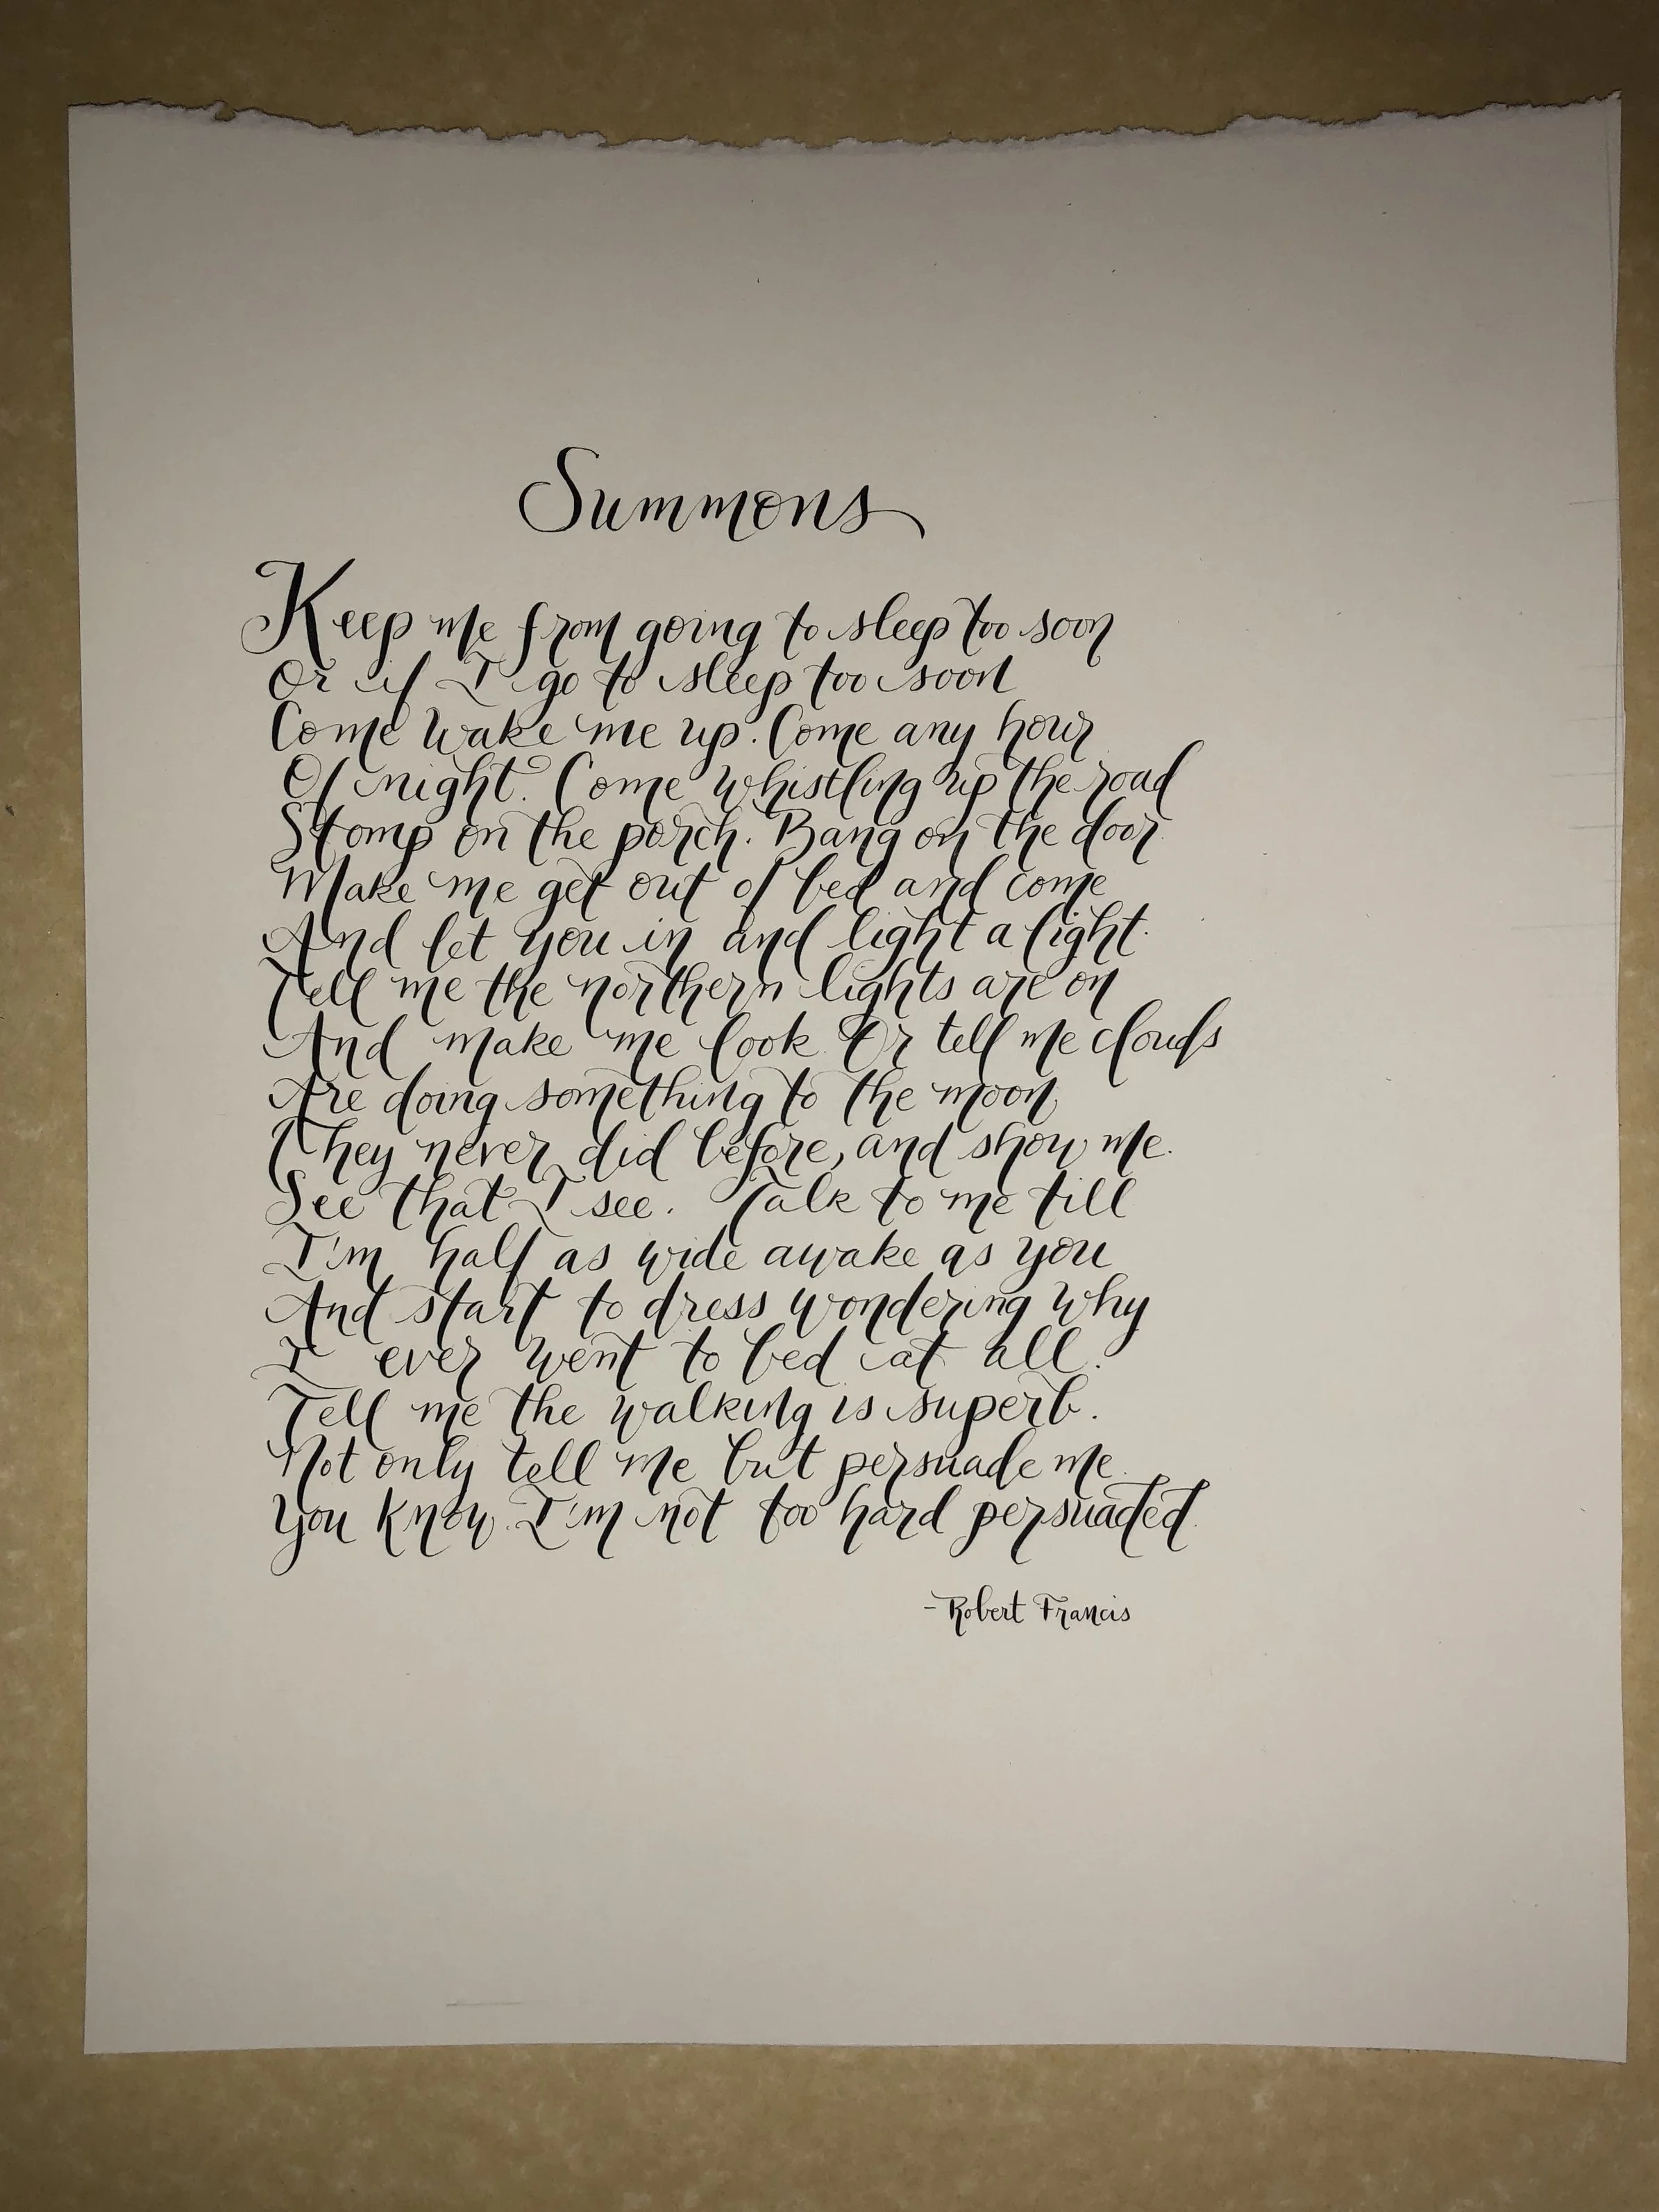 Summons
Keep me from going to sleep too soon
Or if I go to sleep too soon
Come wake me up. Come any hour
Of night. Come whistling up the road
Stomp on the porch. Bang on the door.
Make me get out of bed and come
And let you in and light a light.
Tell me the northern lights are on
And make me look. Or tell me clouds
Are doing something to the moon
They never did before, and show me.
See that I see. Talk to me till
I'm half as wide awake as you
And start to dress wondering why
I ever went to bed at all.
Tell me the walking is superb.
Not only tell me but persuade me.
You know I'm not too hard persuaded.
-Robert Francis